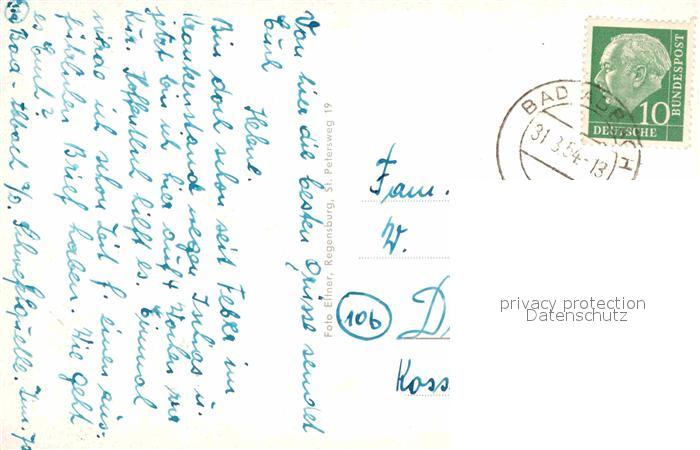 Von hier die besten Grüsse sendet
Euch
Helene.
Bin doch schon seit Febr. im
Krankenstand wegen Ischias u.
jetzt bin ich hier auf 4 Wochen zur
Kur. Hoffentlich hilft es. Einmal
werde ich schon Zeit f. einen aus-
führlichen Brief haben. Wie geht
es Euch?
Bad-Abbach Schwefelquelle. Zim.
Foto Ellner, Regensburg, St. Petersweg 19
10
DEUTSCHE
BUNDESPOST
BAD ABBACH
31.3.54.-13
Fam.
W.
106
D
Koss
privacy protection
Datenschutz